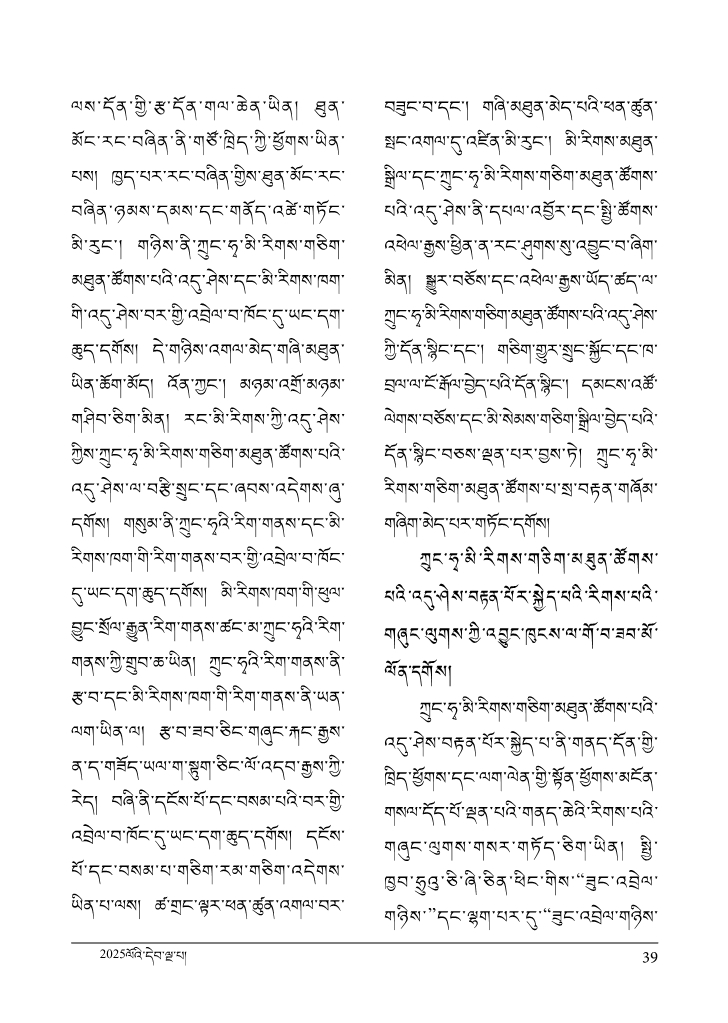 ལས་དོན་གྱི་རྩ་དོན་གལ་ཆེན་ཡིན། ཐུན་
མོང་རང་བཞིན་ནི་གཙོ་ཁྲིད་ཀྱི་ཕྱོགས་ཡིན་
པས། ཁྱད་པར་རང་བཞིན་གྱིས་ཐུན་མོང་རང་
བཞིན་ཉམས་དམས་དང་གནོད་འཚེ་གཏོང་
མི་རུང་། གཉིས་ནི་ཀྲུང་ཧྭ་མི་རིགས་གཅིག་
མཐུན་ཚོགས་པའི་འདུ་ཤེས་དང་མི་རིགས་ཁག་
གི་འདུ་ཤེས་བར་གྱི་འབྲེལ་བ་ཁོང་དུ་ཡང་དག་
ཆུད་དགོས། དེ་གཉིས་འགལ་མེད་གཞི་མཐུན་
ཡིན་ཆོག་མོད། འོན་ཀྱང་། མཉམ་འགྲོ་མཉམ་
གཤིབ་ཅིག་མིན། རང་མི་རིགས་ཀྱི་འདུ་ཤེས་
ཀྱིས་ཀྲུང་ཧྭ་མི་རིགས་གཅིག་མཐུན་ཚོགས་པའི་
འདུ་ཤེས་ལ་བརྩི་སྲུང་དང་ཞབས་འདེགས་ཞུ་
དགོས། གསུམ་ནི་ཀྲུང་ཧྭའི་རིག་གནས་དང་མི་
རིགས་ཁག་གི་རིག་གནས་བར་གྱི་འབྲེལ་བ་ཁོང་
དུ་ཡང་དག་ཆུད་དགོས། མི་རིགས་ཁག་གི་ཕུལ་
བྱུང་སྲོལ་རྒྱུན་རིག་གནས་ཚང་མ་ཀྲུང་ཧྭའི་རིག་
གནས་ཀྱི་གྲུབ་ཆ་ཡིན། ཀྲུང་ཧྭའི་རིག་གནས་ནི་
རྩ་བ་དང་མི་རིགས་ཁག་གི་རིག་གནས་ནི་ཡན་
ལག་ཡིན་ལ། རྩ་བ་ཟབ་ཅིང་གཞུང་རྐང་རྒྱས་
ན་ད་གཟོད་ཡལ་ག་སྟུག་ཅིང་ལོ་འདབ་རྒྱས་ཀྱི་
རེད། བཞི་ནི་དངོས་པོ་དང་བསམ་པའི་བར་གྱི་
འབྲེལ་བ་ཁོང་དུ་ཡང་དག་ཆུད་དགོས། དངོས་
པོ་དང་བསམ་པ་གཅིག་རམ་གཅིག་འདེགས་
ཡིན་པ་ལས། ཚ་གྲང་ལྟར་ཕན་ཚུན་འགལ་བར་
བཟུང་བ་དང་། གཞི་མཐུན་མེད་པའི་ཕན་ཚུན་
སྤང་འགལ་དུ་འཛིན་མི་རུང་། མི་རིགས་མཐུན་
སྒྲིལ་དང་ཀྲུང་ཧྭ་མི་རིགས་གཅིག་མཐུན་ཚོགས་
པའི་འདུ་ཤེས་ནི་དཔལ་འབྱོར་དང་སྤྱི་ཚོགས་
འཕེལ་རྒྱས་ཕྱིན་ན་རང་ཤུགས་སུ་འབྱུང་བ་ཞིག་
མིན། སྒྱུར་བཅོས་དང་འཕེལ་རྒྱས་ཡོད་ཚད་ལ་
ཀྲུང་ཧྭ་མི་རིགས་གཅིག་མཐུན་ཚོགས་པའི་འདུ་ཤེས་
ཀྱི་དོན་སྙིང་དང་། གཅིག་གྱུར་སྲུང་སྐྱོང་དང་ཁ་
བྲལ་ལ་ངོ་རྒོལ་བྱེད་པའི་དོན་སྙིང་། དམངས་འཚོ་
ལེགས་བཅོས་དང་མི་སེམས་གཅིག་སྒྲིལ་བྱེད་པའི་
དོན་སྙིང་བཅས་ལྡན་པར་བྱས་ཏེ། ཀྲུང་ཧྭ་མི་
རིགས་གཅིག་མཐུན་ཚོགས་པ་སྲ་བརྟན་གཞོམ་
གཞིག་མེད་པར་གཏོང་དགོས།
ཀྲུང་ཧྭ་མི་རིགས་གཅིག་མཐུན་ཚོགས་
པའི་འདུ་ཤེས་བརྟན་པོར་སྐྱེད་པའི་རིགས་པའི་
གཞུང་ལུགས་ཀྱི་འབྱུང་ཁུངས་ལ་གོ་བ་ཟབ་མོ་
ལོན་དགོས།
ཀྲུང་ཧྭ་མི་རིགས་གཅིག་མཐུན་ཚོགས་པའི་
འདུ་ཤེས་བརྟན་པོར་སྐྱེད་པ་ནི་གནད་དོན་གྱི་
ཁྲིད་ཕྱོགས་དང་ལག་ལེན་གྱི་སྟོན་ཕྱོགས་མངོན་
གསལ་དོད་པོ་ལྡན་པའི་གནད་ཆེའི་རིགས་པའི་
གཞུང་ལུགས་གསར་གཏོད་ཅིག་ཡིན། སྤྱི་
ཁྱབ་ཧྲུའུ་ཅི་ཞི་ཅིན་ཕིང་གིས་“ཟུང་འབྲེལ་
གཉིས་”དང་ལྷག་པར་དུ་“ཟུང་འབྲེལ་གཉིས་
2025ལོའི་དེབ་ལྔ་པ།
39